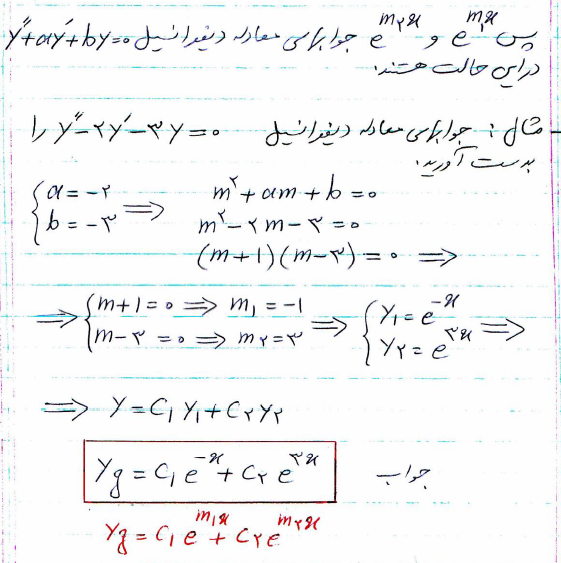 پس e^{m₁x} و e^{m₂x} جوابهای معادله دیفرانسیل y″+ay′+by=۰
در این حالت هستند.
- مثال: جوابهای معادله دیفرانسیل y″-۲y′-۳y=۰ را
بدست آورید.
{a=-۲ ⇒ m²+am+b=۰
{b=-۳ m²-۲m-۳=۰
(m+۱)(m-۳)=۰ ⇒
⇒ {m+۱=۰ ⇒ m₁=-۱ ⇒ {y₁=e^{-x} ⇒
{m-۳=۰ ⇒ m₂=۳ {y₂=e^{۳x}
⇒ y=c₁y₁+c₂y₂
y_g=c₁e^{-x}+c₂e^{۳x} جواب
y_g=c₁e^{m₁x}+c₂e^{m₂x}